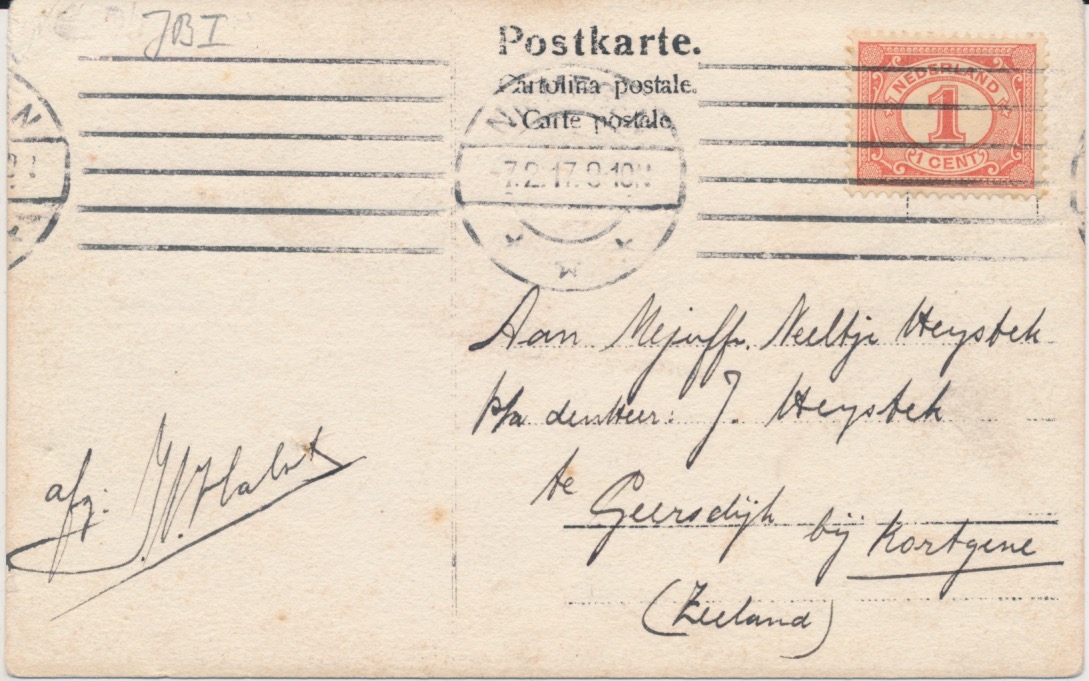 JBI
Postkarte.
Cartolina postale.
Carte postale
7.2.17.8-10N
NEDERLAND
1
1 CENT
Aan Mejuffr. Neeltje Heystek
p/a den Heer: J. Heystek
te Geersdijk bij Kortgene
(Zeeland)
afz: